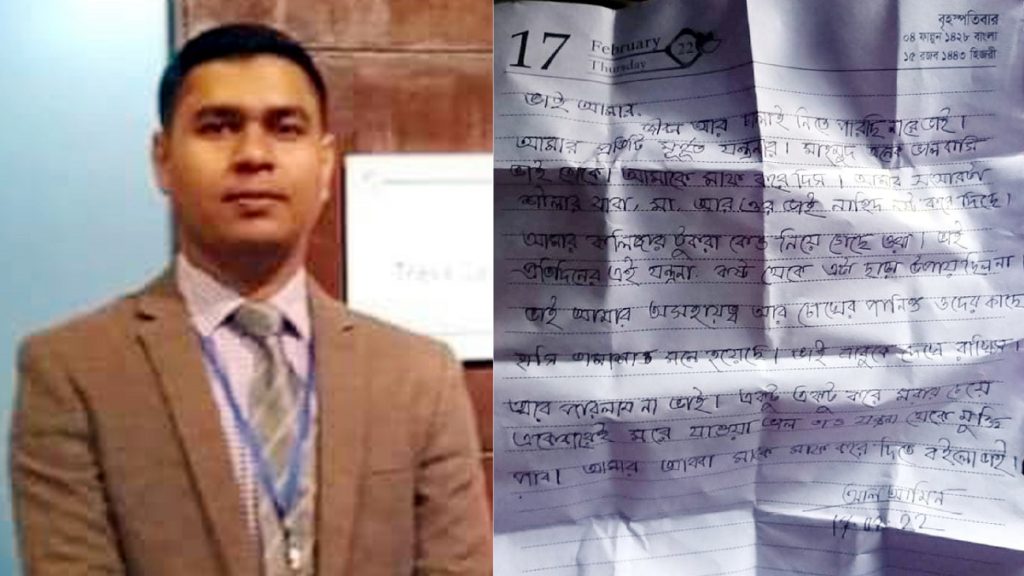 বৃহস্পতিবার
17 February 22
Thursday
০৪ ফাল্গুন ১৪২৮ বাংলা
১৫ রজব ১৪৪৩ হিজরী
ভাই আমার,
জীবন আর চালাই নিতে পারছি নারে ভাই।
আমার প্রতিটি মুহূর্ত যন্ত্রনার। মাহমুদ অনেক ভালবাসি
ভাই তোকে। আমাকে মাফ করে দিস। আমার সংসারটা
শীলার বাবা, মা আর ওর ভাই নাহিদ নষ্ট করে দিছে।
আমার কলিজার টুকরা কেড়ে নিয়ে গেছে ওরা। এই
প্রতিদিনের এই যন্ত্রনা কষ্ট থেকে এটা ছাড়া উপায় ছিল না।
ভাই আমার অসহায়ত্ব আর চোখের পানিও ওদের কাছে
হাসি মনে হয়েছে। ভাই বাবুকে দেখে রাখিস।
আর পারলাম না ভাই। একটু একটু করে মরার চেয়ে
একেবারেই মরে যাওয়া ভাল এত যন্ত্রনা থেকে মুক্তি
পাব। আমার আব্বা মাকে মাফ করে দিতে বইলো ভাই।
আল আমিন
17.02.22